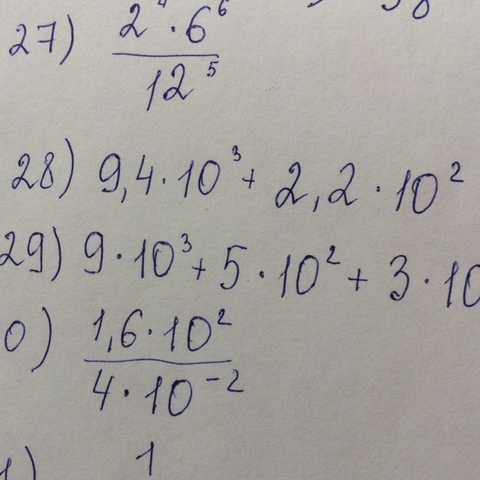 27) 2⁴ · 6⁶ / 12⁵
28) 9,4 · 10³ + 2,2 · 10²
29) 9 · 10³ + 5 · 10² + 3 · 10
0) 1,6 · 10² / 4 · 10⁻²
1) 1